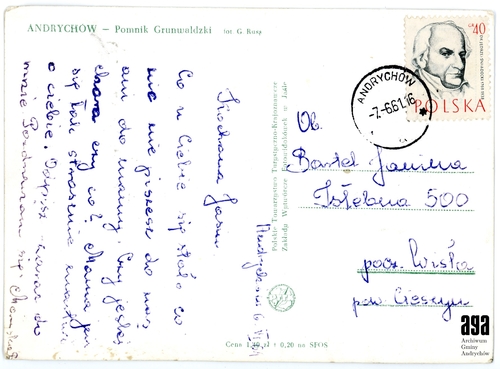 ANDRYCHÓW — Pomnik Grunwaldzki fot. G. Rusp.
Kochana Jasiu
Co u Ciebie się stało co
nic nie piszesz do nas
ani do mamy. Czy jesteś
chora czy co? Mama jest
się tak strasznie martwi
o ciebie. Odpisz zaraz do
mnie Pozdrawiam się.
Andrychów 6 VI 61
Polskie Towarzystwo Turystyczno-Krajoznawcze
Zakłady Wytwórcze
Cena 1,30 zł + 0,20 na SFOS
40
POLSKA
ANDRYCHÓW
-7-6.61.16
Ob.
Bartel Janina
Istebna 500
pocz. Wisła
pow. Cieszyn
aga
Archiwum
Gminy
Andrychów